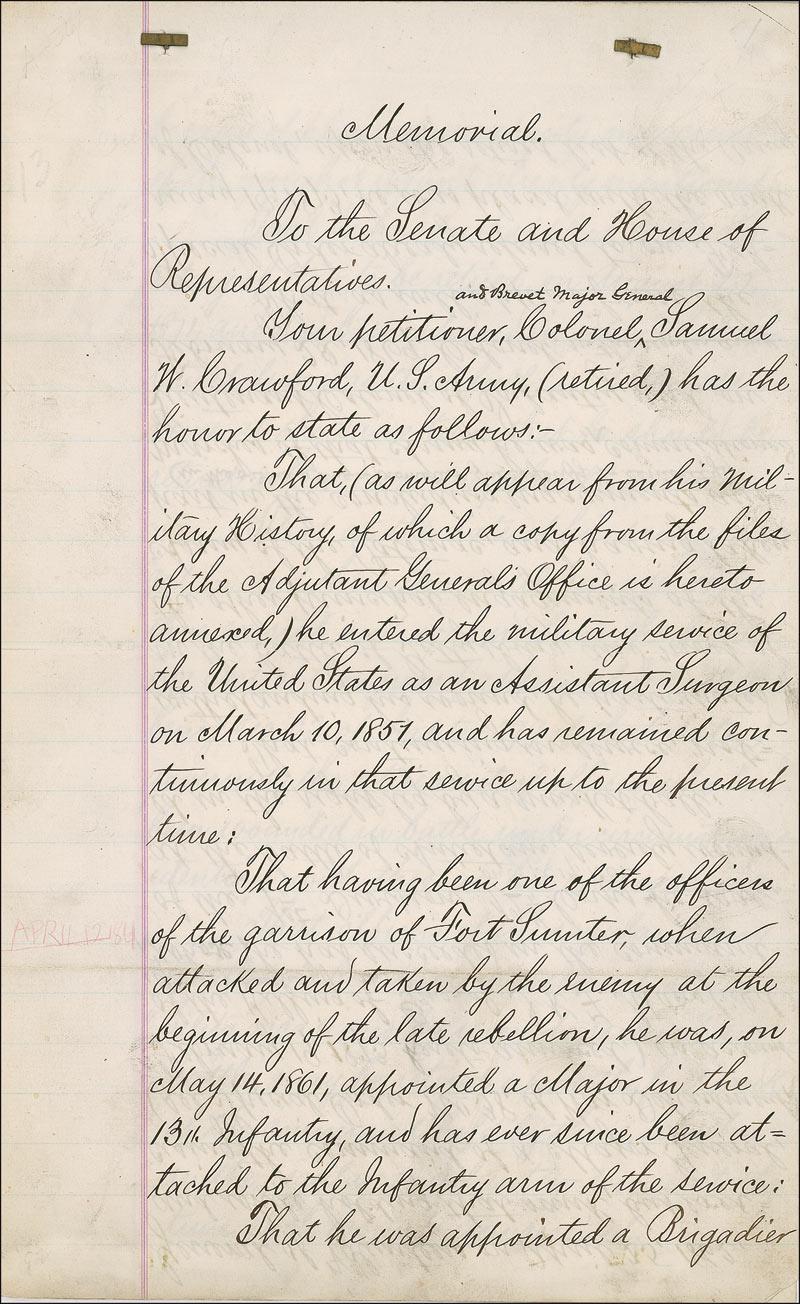 Memorial.
To the Senate and House of
Representatives.
and Brevet Major General
Your petitioner, Colonel, ^ Samuel
W. Crawford, U.S. Army, (retired,) has the
honor to state as follows:-
That, (as will appear from his Mil-
itary History, of which a copy from the files
of the Adjutant General's Office is hereto
annexed,) he entered the military service of
the United States as an Assistant Surgeon
on March 10, 1851, and has remained con-
tinuously in that service up to the present
time:
That having been one of the officers
APRIL 12 1861
of the garrison of Fort Sumter, when
attacked and taken by the enemy at the
beginning of the late rebellion, he was, on
May 14, 1861, appointed a Major in the
13th Infantry, and has ever since been at=
tached to the Infantry arm of the service:
That he was appointed a Brigadier